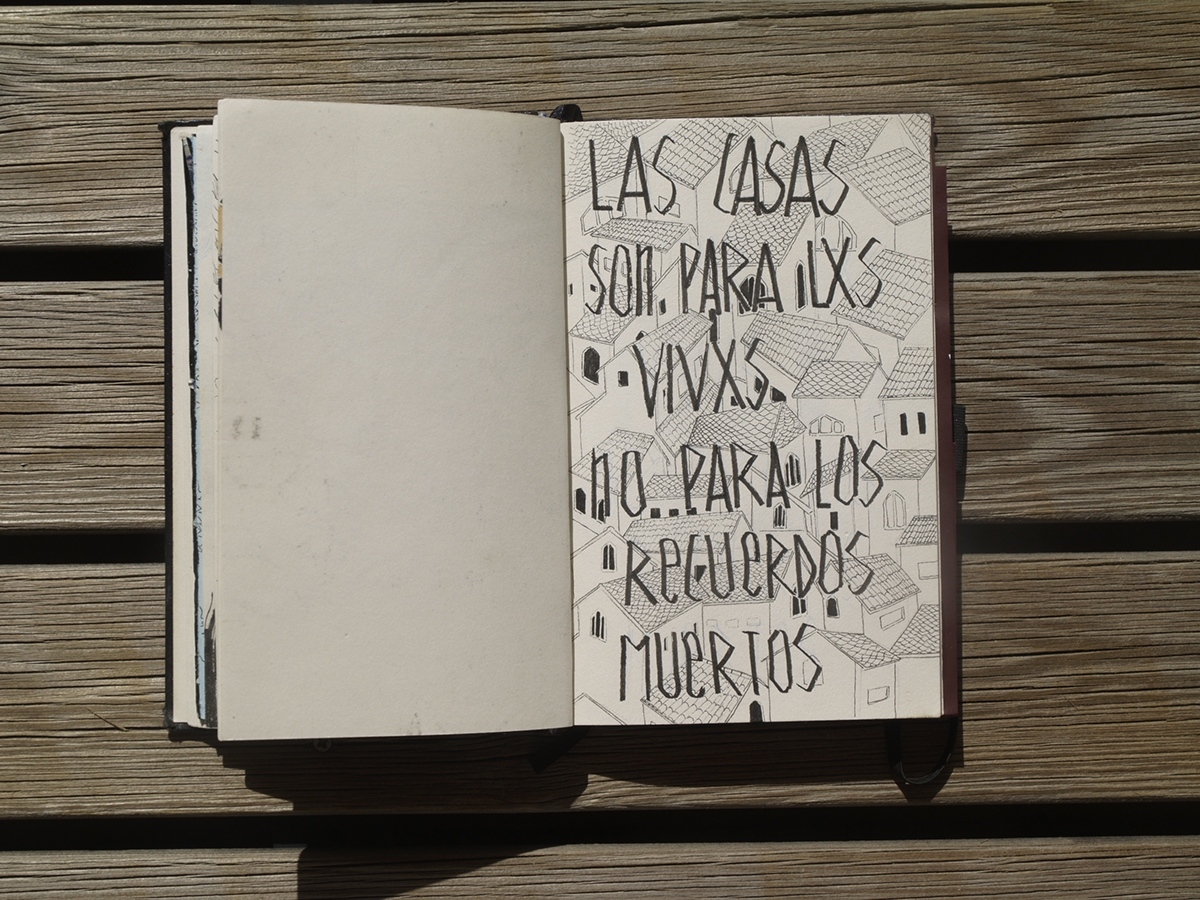 LAS CASAS
SON PARA LXS
VIVXS
NO PARA LOS
RECUERDOS
MUERTOS